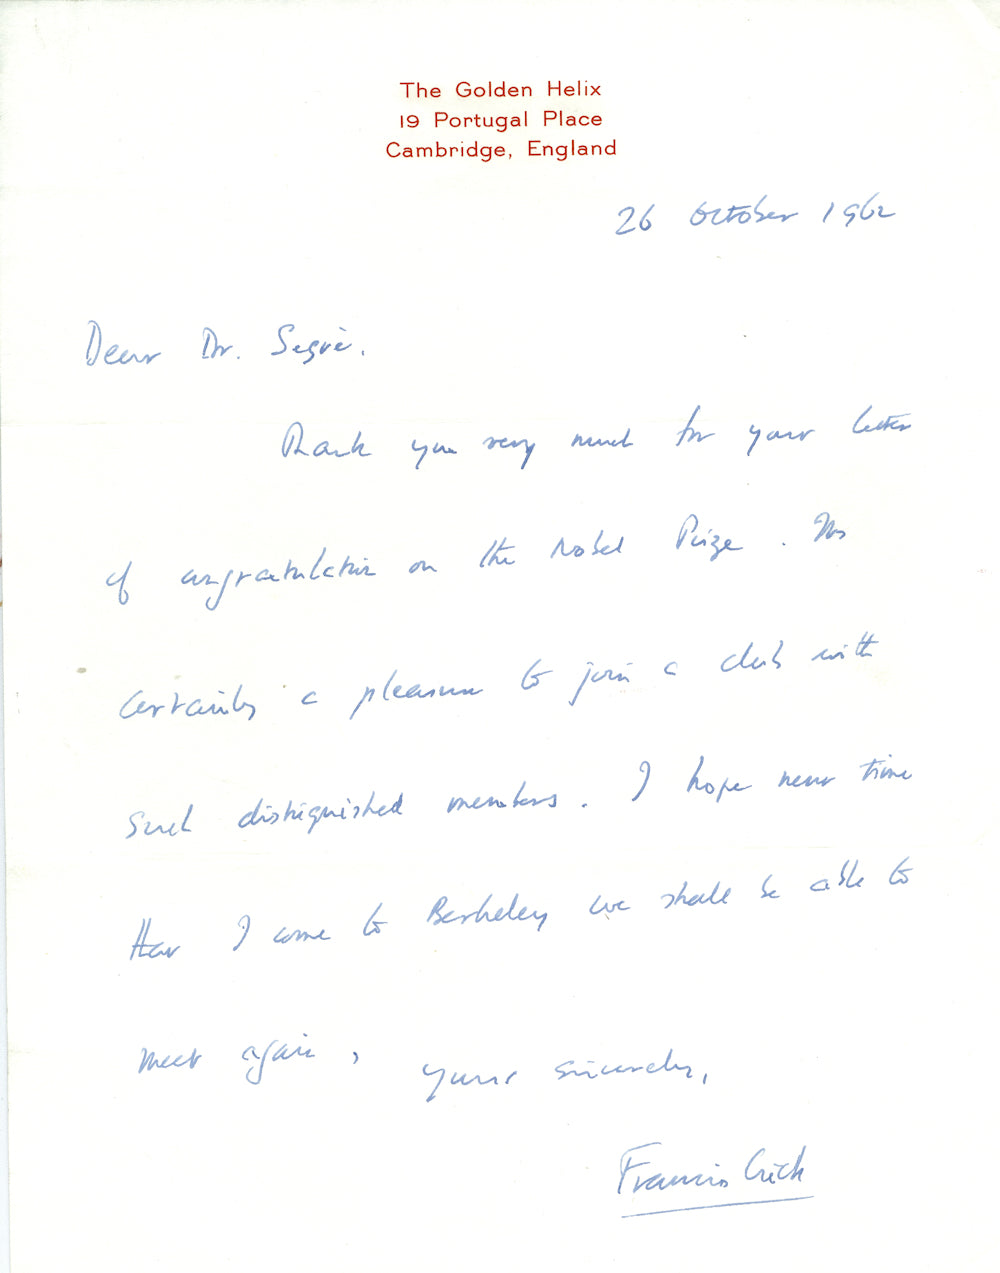 The Golden Helix
19 Portugal Place
Cambridge, England
26 October 1962
Dear Dr. Segrè,
Thank you very much for your letter
of congratulation on the Nobel Prize. It is
certainly a pleasure to join a club with
such distinguished members. I hope next time
that I come to Berkeley we shall be able to
meet again,
yours sincerely,
Francis Crick